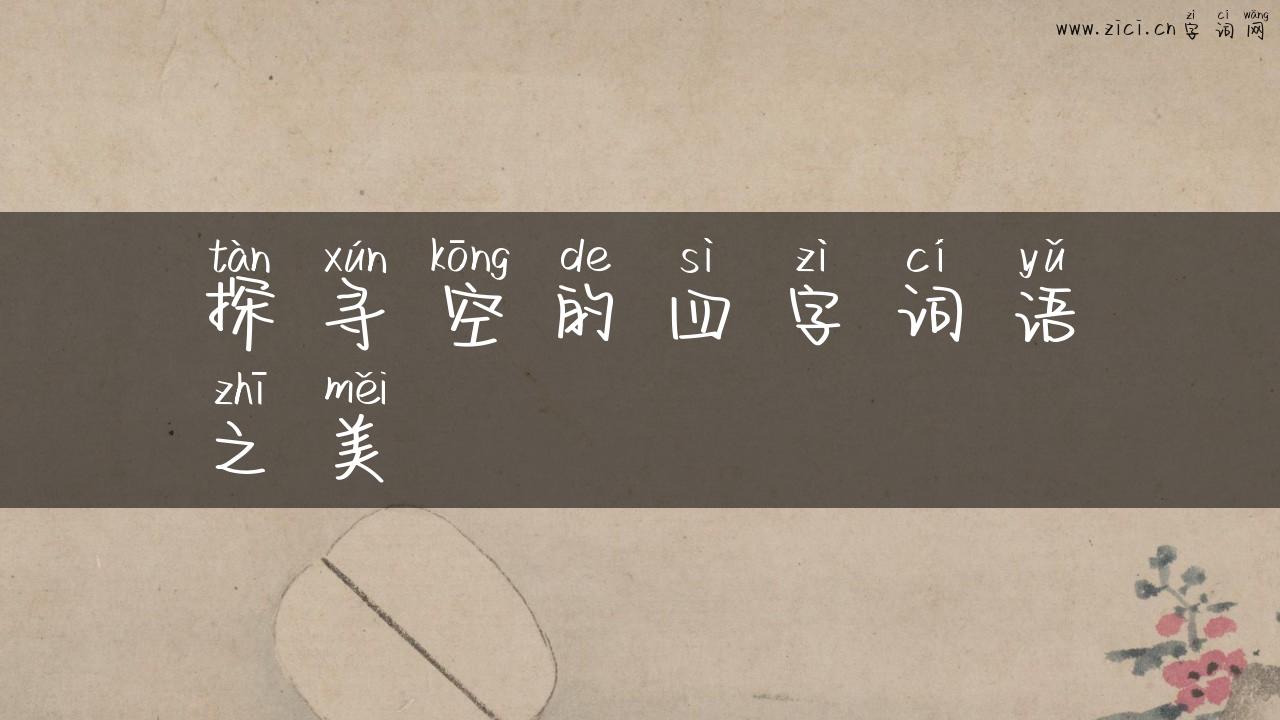 zì cí wǎng
www.zici.cn 字 词 网
tàn xún kōng de sì zì cí yǔ
探 寻 空 的 四 字 词 语
zhī měi
之 美